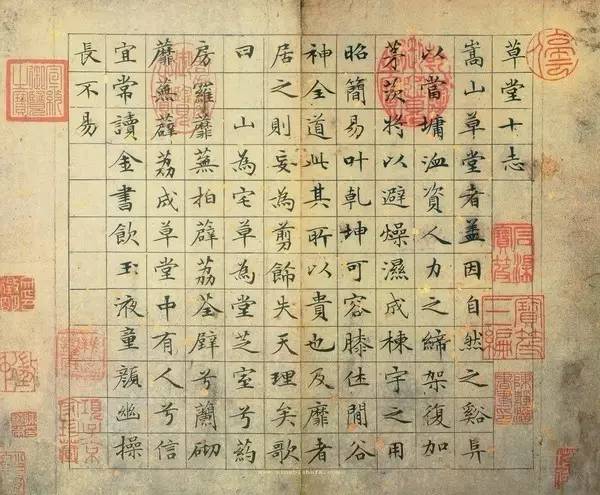 草堂十志
嵩山草堂者盖因自然之谿阜
以當墉洫資人力之締架復加
茅茨將以避燥濕成棟宇之用
昭簡易叶乾坤可容膝住閒谷
神全道此其所以貴也及靡者
居之則妄為剪餙失天理矣歌
曰　山為宅草為堂芝室兮葯
房羅蘼蕪拍薜荔荃壁兮蘭砌
蘼蕪薜荔成草堂中有人兮信
宜常讀金書飲玉液童顏幽操
長不易